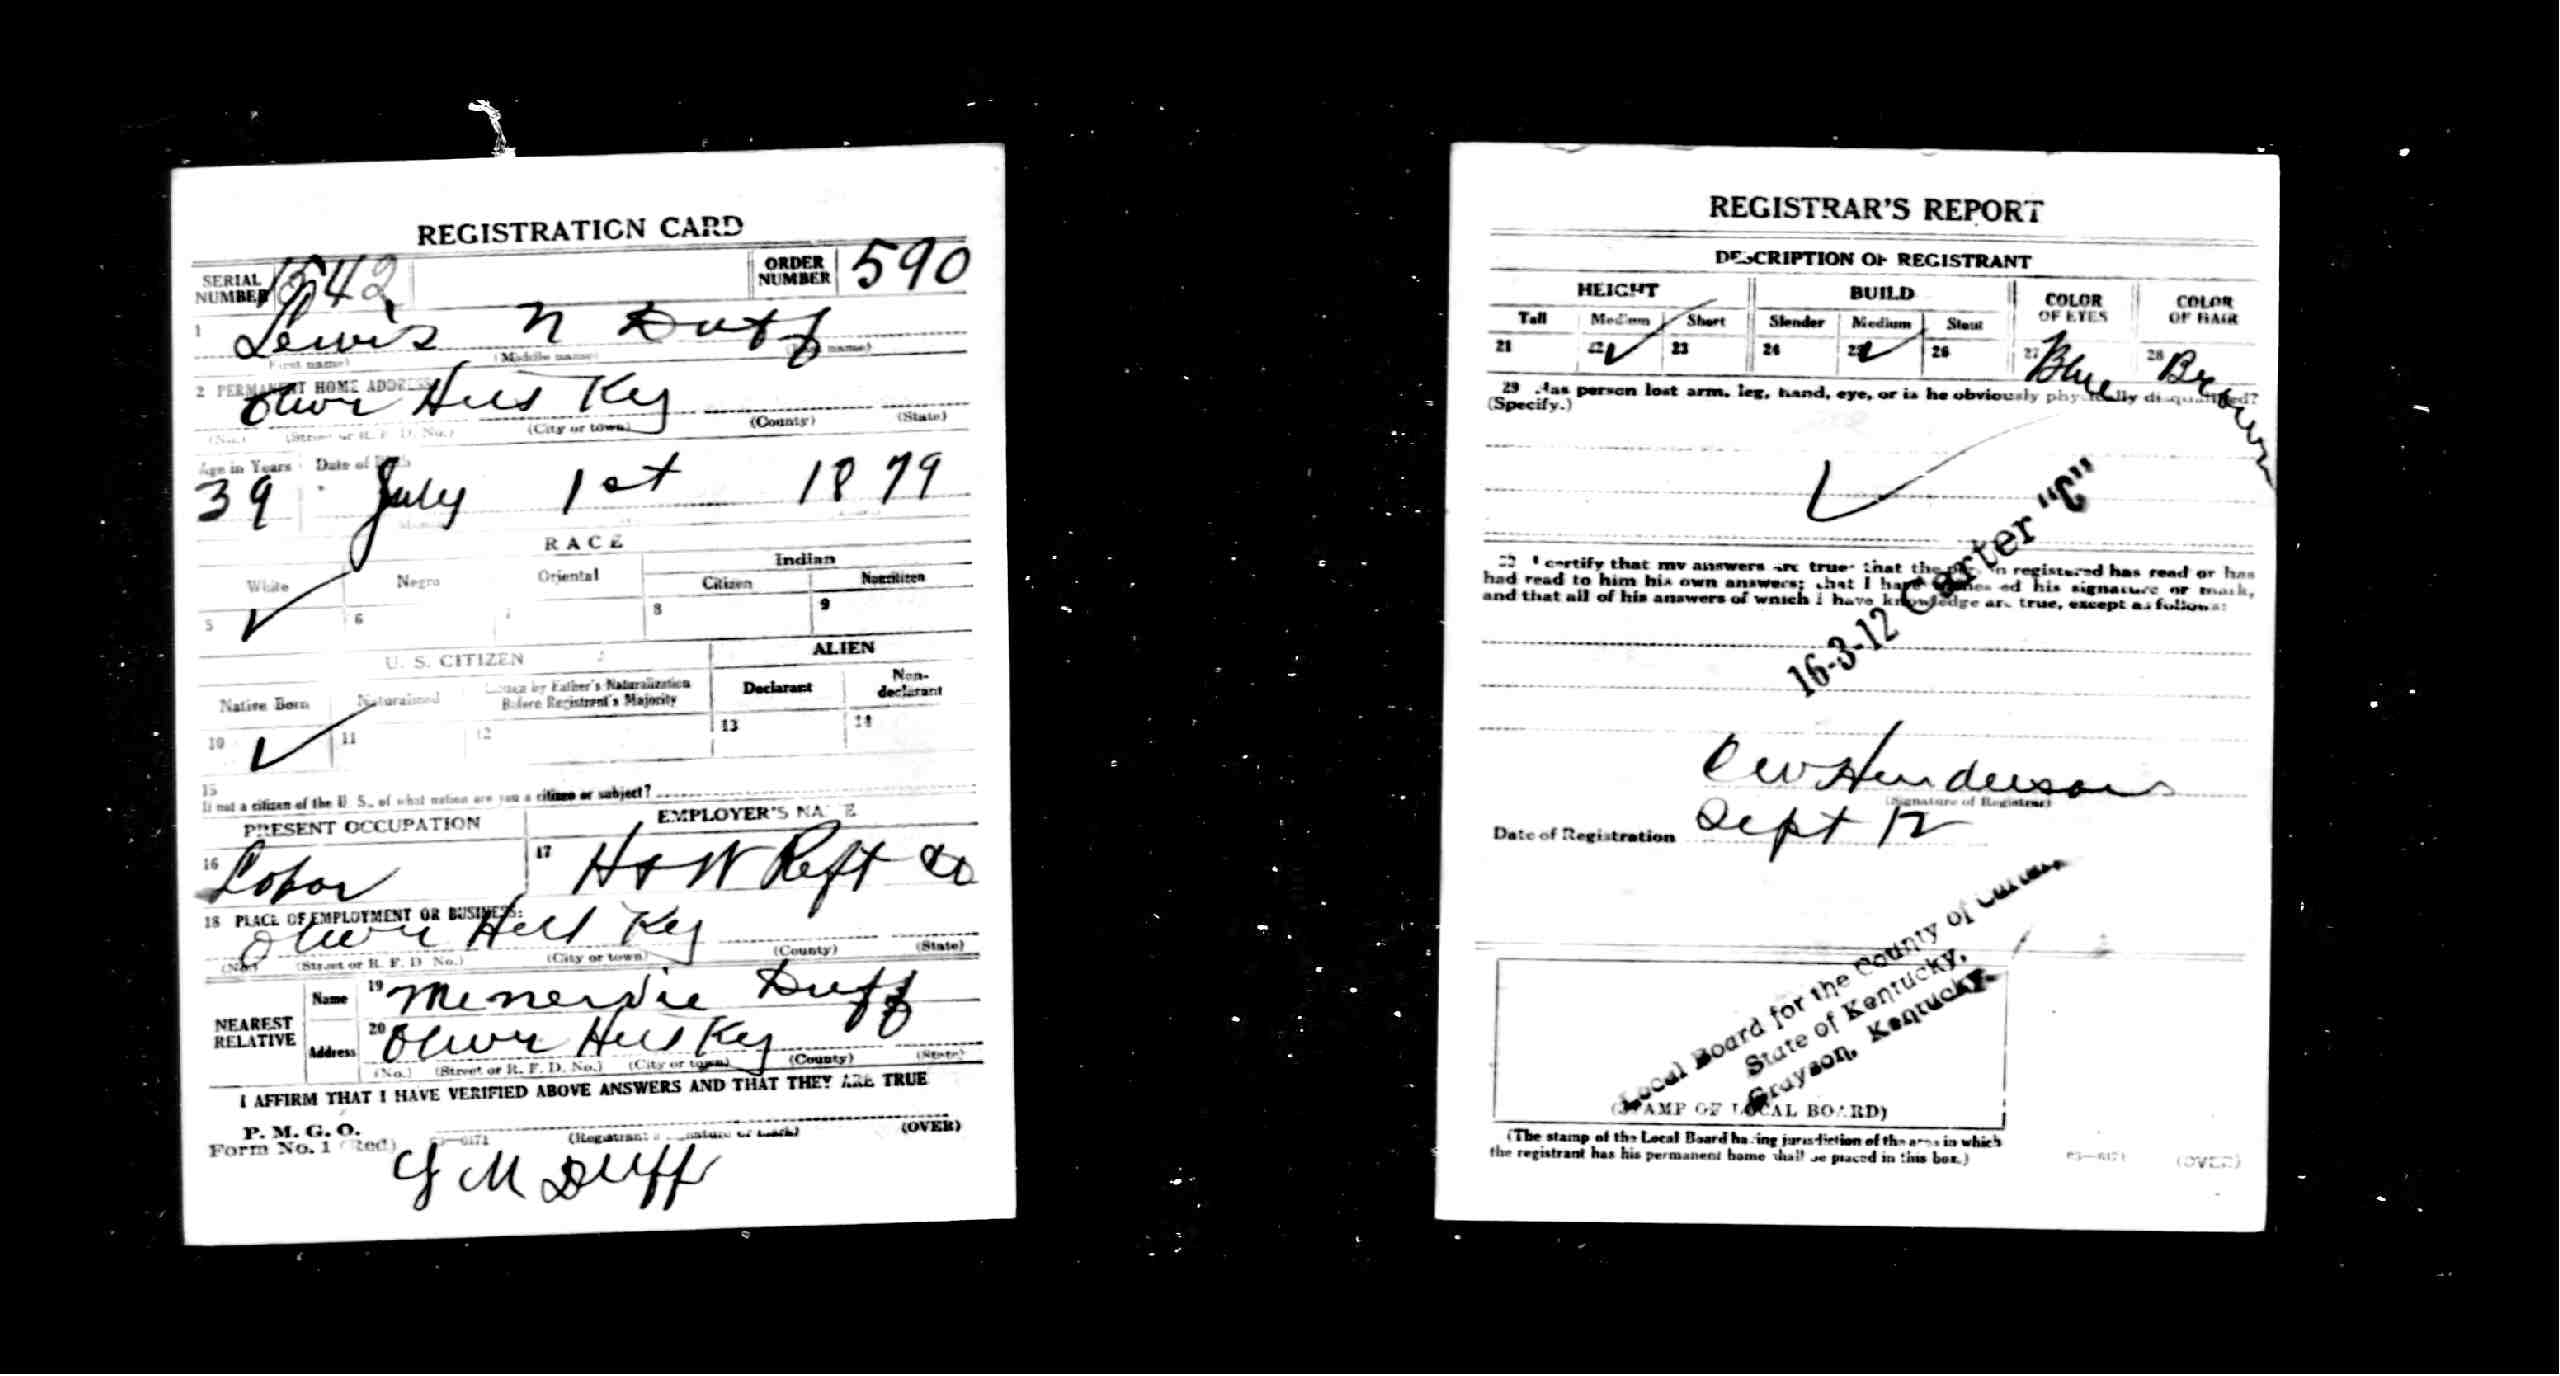 REGISTRATION CARD
SERIAL NUMBER 1542 ORDER NUMBER 590
1 Lewis N Duff
(First name) (Middle name) (Last name)
2 PERMANENT HOME ADDRESS:
Olive Hill Ky
(No.) (Street or R. F. D. No.) (City or town) (County) (State)
Age in Years Date of Birth
39 July 1st 1879
RACE
White Negro Oriental Indian
Citizen Noncitizen
5 ✓ 6 7 8 9
U. S. CITIZEN ALIEN
Native Born Naturalized Citizen by Father's Naturalization Before Registrant's Majority Declarant Non-declarant
10 ✓ 11 12 13 14
15
If not a citizen of the U. S., of what nation are you a citizen or subject?
PRESENT OCCUPATION EMPLOYER'S NAME
16 Lobor 17 H & W Reft Co
18 PLACE OF EMPLOYMENT OR BUSINESS:
Olive Hill Ky
(No.) (Street or R. F. D. No.) (City or town) (County) (State)
NEAREST RELATIVE Name 19 Duff
Address 20 Olive Hill Ky
(No.) (Street or R. F. D. No.) (City or town) (County) (State)
I AFFIRM THAT I HAVE VERIFIED ABOVE ANSWERS AND THAT THEY ARE TRUE
P. M. G. O.
Form No. 1 (Red) 03—6171 (Registrant's signature or mark) (OVER)
M Duff
REGISTRAR'S REPORT
DESCRIPTION OF REGISTRANT
HEIGHT BUILD COLOR OF EYES COLOR OF HAIR
Tall Medium Short Slender Medium Stout
21 22 ✓ 23 24 25 ✓ 26 27 Blue 28 Brown
29 Has person lost arm, leg, hand, eye, or is he obviously physically disqualified?
(Specify.)
✓
16-3-12 Carter "C"
I certify that my answers are true; that the person registered has read or has
had read to him his own answers; that I have witnessed his signature or mark,
and that all of his answers of which I have knowledge are true, except as follows:
Henderson
(Signature of Registrar)
Date of Registration Sept 12
Local Board for the County of Carter,
State of Kentucky,
Grayson, Kentucky.
(STAMP OF LOCAL BOARD)
(The stamp of the Local Board having jurisdiction of the area in which
the registrant has his permanent home shall be placed in this box.)
03—6171 (OVER)